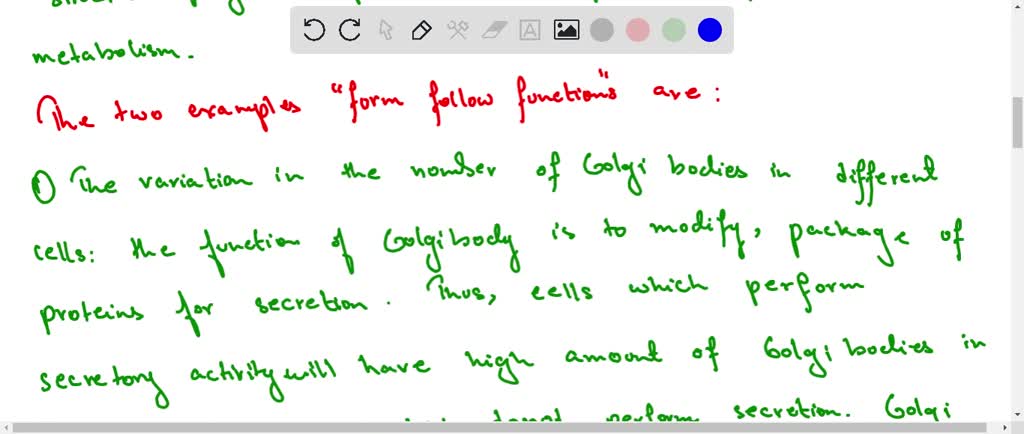 metabolism.
The two examples "form follow functions" are:
① The variation in the number of Golgi bodies in different
cells: the function of Golgibody is to modify, package of
proteins for secretion. Thus, cells which perform
secretory activity will have high amount of Golgi bodies in
perform secretion. Golgi